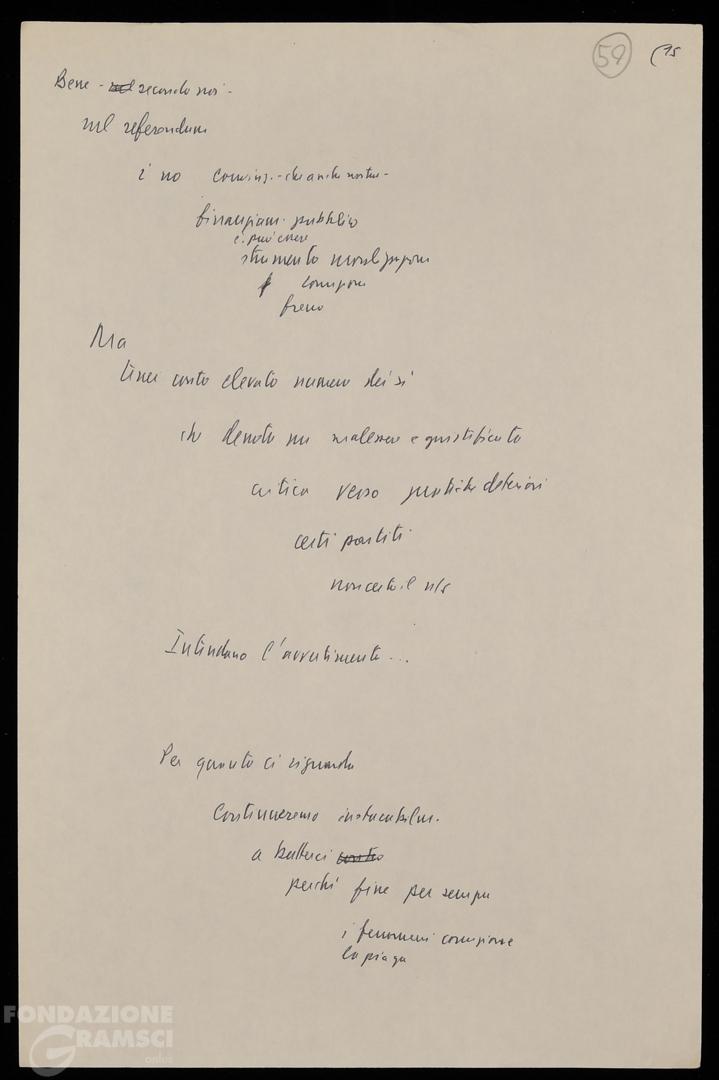 59 (15
Bene - secondo noi -
nel referendum
i no convinz. - che anche nostra -
finanziam. pubblico
è. può essere
strumento moralizzazione
corruzione
freno
Ma
tener conto elevato numero dei sì
che denota un malessere e giustificata
critica verso pratiche deteriori
certi partiti
non certo il n/s
Intendano l'avvertimento...
Per quanto ci riguarda
Continueremo instancabilm.
a batterci contro
perché fine per sempre
i fenomeni corruzione
la piaga
FONDAZIONE
GRAMSCI
onlus